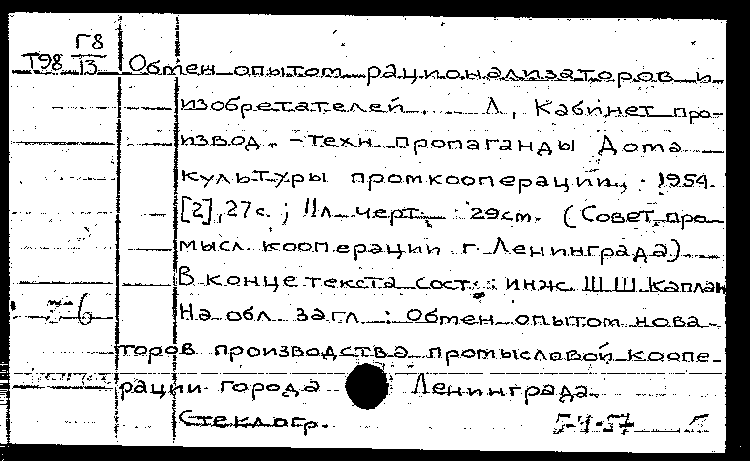 Т98 Г8/13 Обмен опытом рационализаторов и
изобретателей. Л, Кабинет про-
извод.-техн пропаганды Дома
культуры промкооперации, 1954.
[2], 27с.; 11л. черт. 29см. (Совет про-
мысл. кооперации г. Ленинграда)
В конце текста сост.: инж. Ш.Ш. Каплан
На обл. загл.: Обмен опытом нова-
торов производства промысловой коопе-
рации города Ленинграда.
Стеклогр.